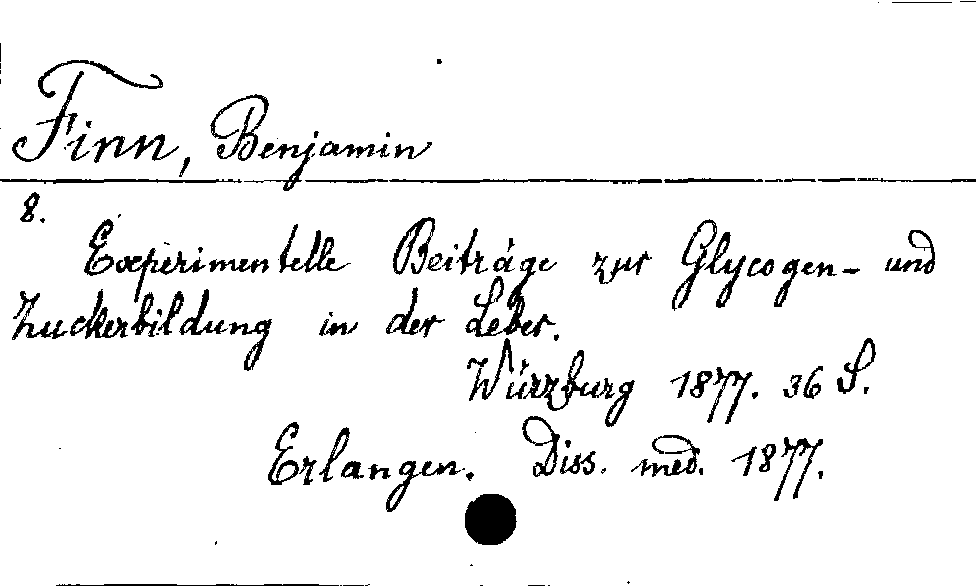 Finn, Benjamin
8.
Experimentelle Beiträge zur Glycogen- und
Zuckerbildung in der Leber.
Würzburg 1877. 36 S.
Erlangen. Diss. med. 1877.